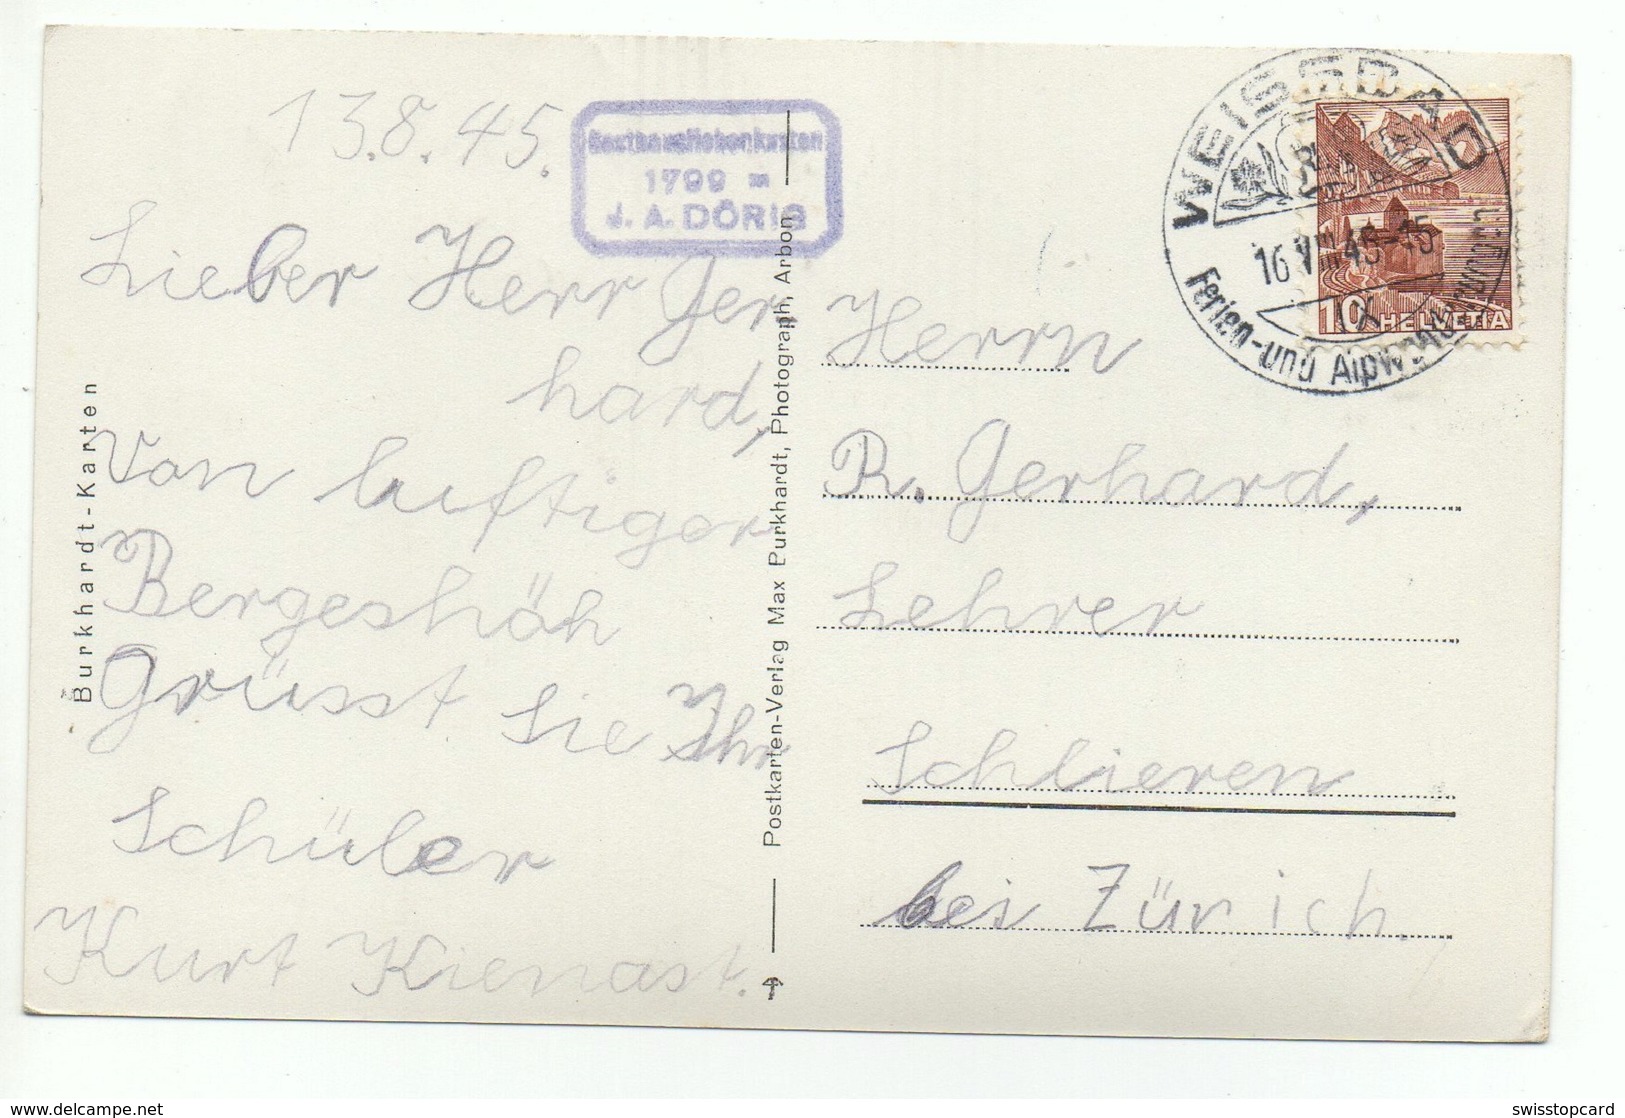 13.8.45.
1799 m
J. A. DÖRIG
Lieber Herr Ger
hard,
Von luftiger
Bergeshöh
Grüsst Sie Ihr
Schüler
Kurt Kienast.
Burkhardt-Karten
Postkarten-Verlag Max Burkhardt, Photograph, Arbon
WEISSBAD
16.VIII.45-15
Ferien-und
10 HELVETIA
Herrn
R. Gerhard,
Lehrer
Schlieren
bei Zürich.
swisstopcard
delcampe.net